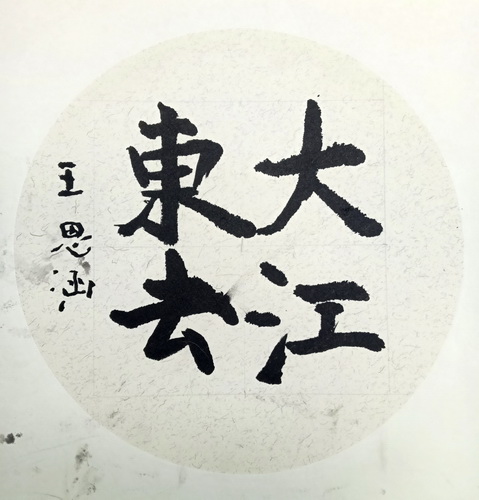 大江
東去
王思涵